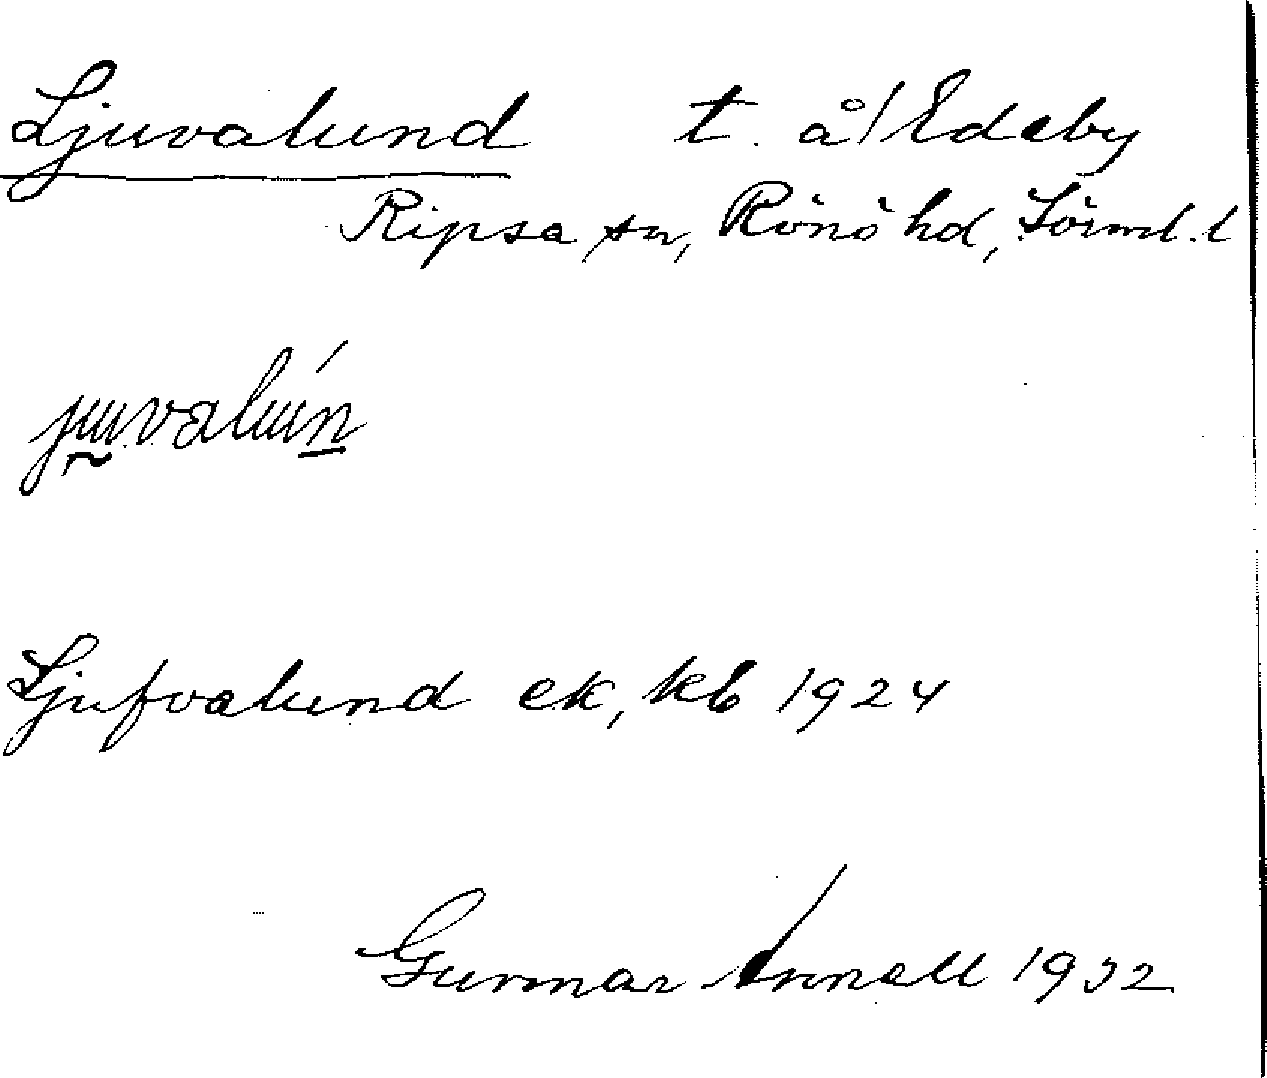 Ljuvalund t. å/ Edeby
Ripsa sn, Rönö hd, Sörml. l
juvalún
Ljufvalund ek, kb 1924
Gunnar Annell 1932